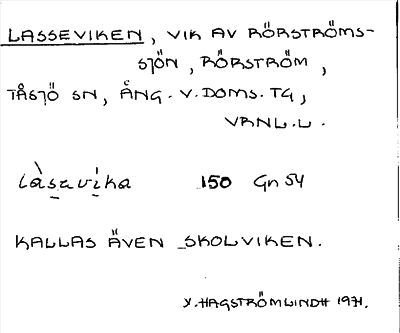 LASSEVIKEN, VIK AV RÖRSTRÖMS-
SJÖN, RÖRSTRÖM,
TÅSJÖ SN, ÅNG. V. DOMS. TG,
VRNL.L.
làsavika 150 Gn 54
KALLAS ÄVEN SKOLVIKEN.
Y. HAGSTRÖMLINDH 1971.